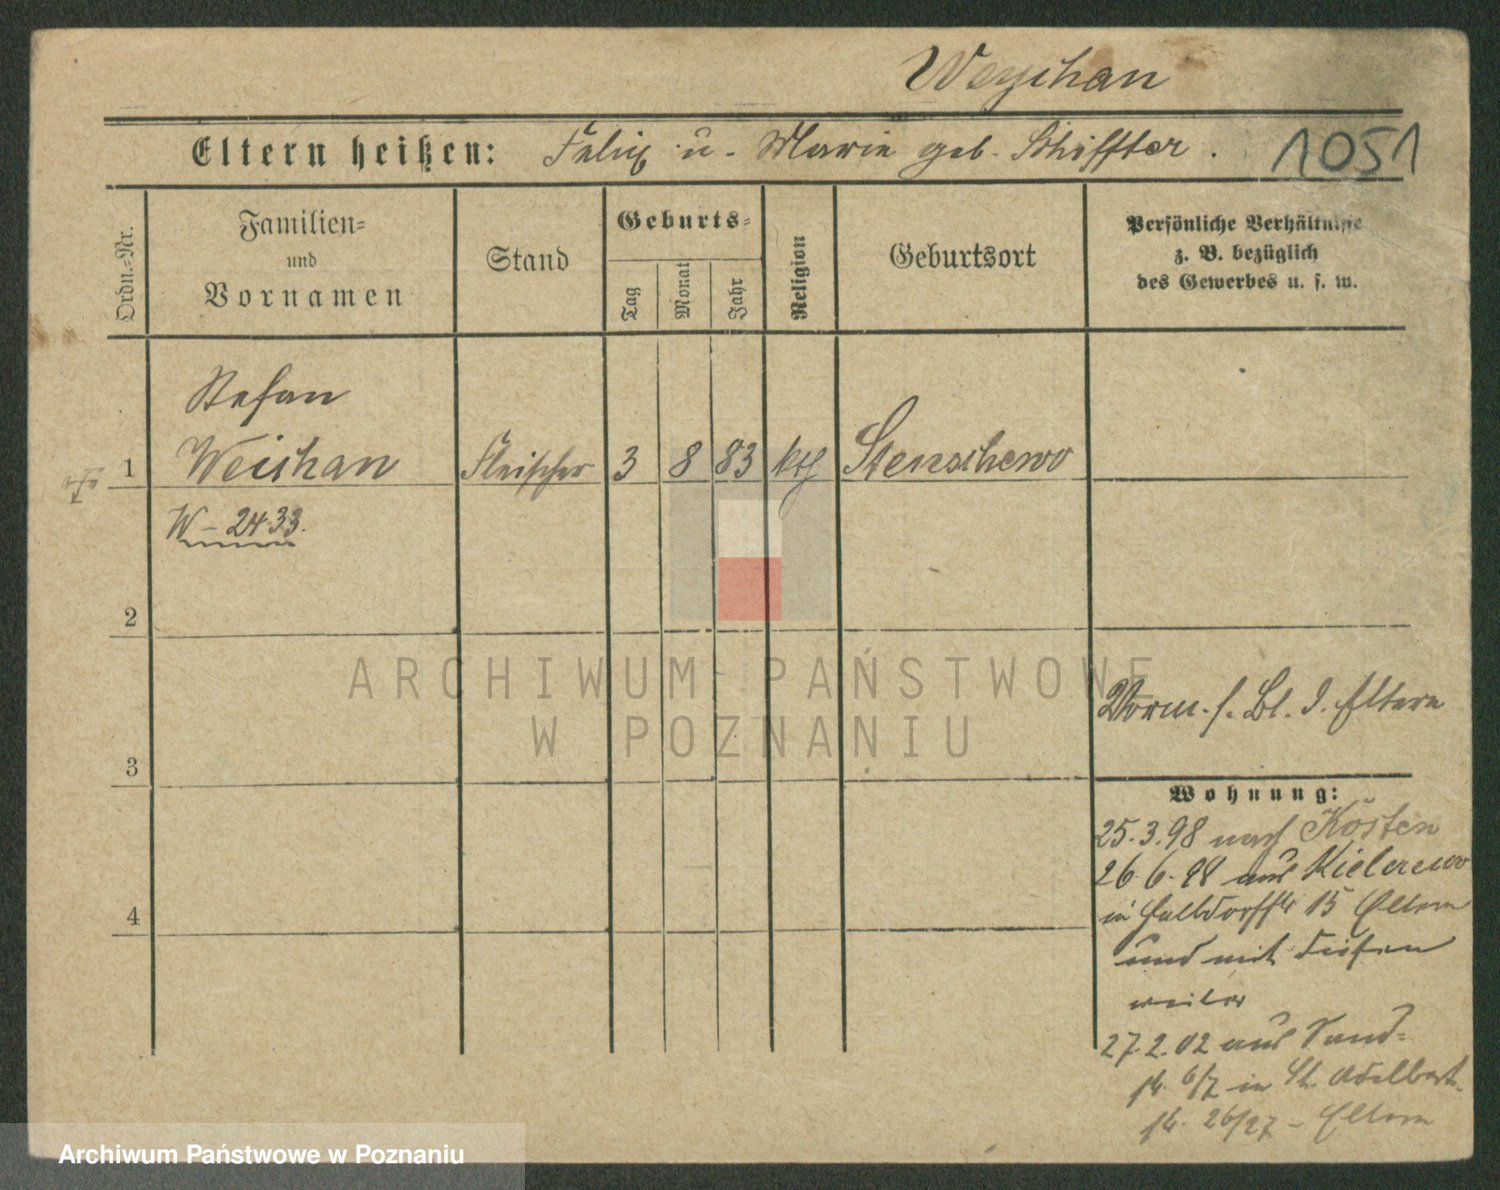 Weychan
Eltern heißen: Felix u. Marie geb. Schiffter.
1051
Ordn.-Nr.
Familien-
und
Vornamen
Stand
Geburts-
Tag
Monat
Jahr
Religion
Geburtsort
Persönliche Verhältnisse
z. B. bezüglich
des Gewerbes u. s. w.
Stefan
1 Weichan Fleischer 3 8 83 kth Stenschewo
W - 2433.
2
Vorm. s. Bl. d. Eltern
3
Wohnung:
25.3.98 nach Kosten
26.6.98 aus
in Halldorfstr 15 Eltern
und mit diesen
weiter
27.2.02 aus Sand-
str. 6/7 in St. Adalbert-
str. 26/27 - Eltern
4
ARCHIWUM PAŃSTWOWE
W POZNANIU
Archiwum Państwowe w Poznaniu